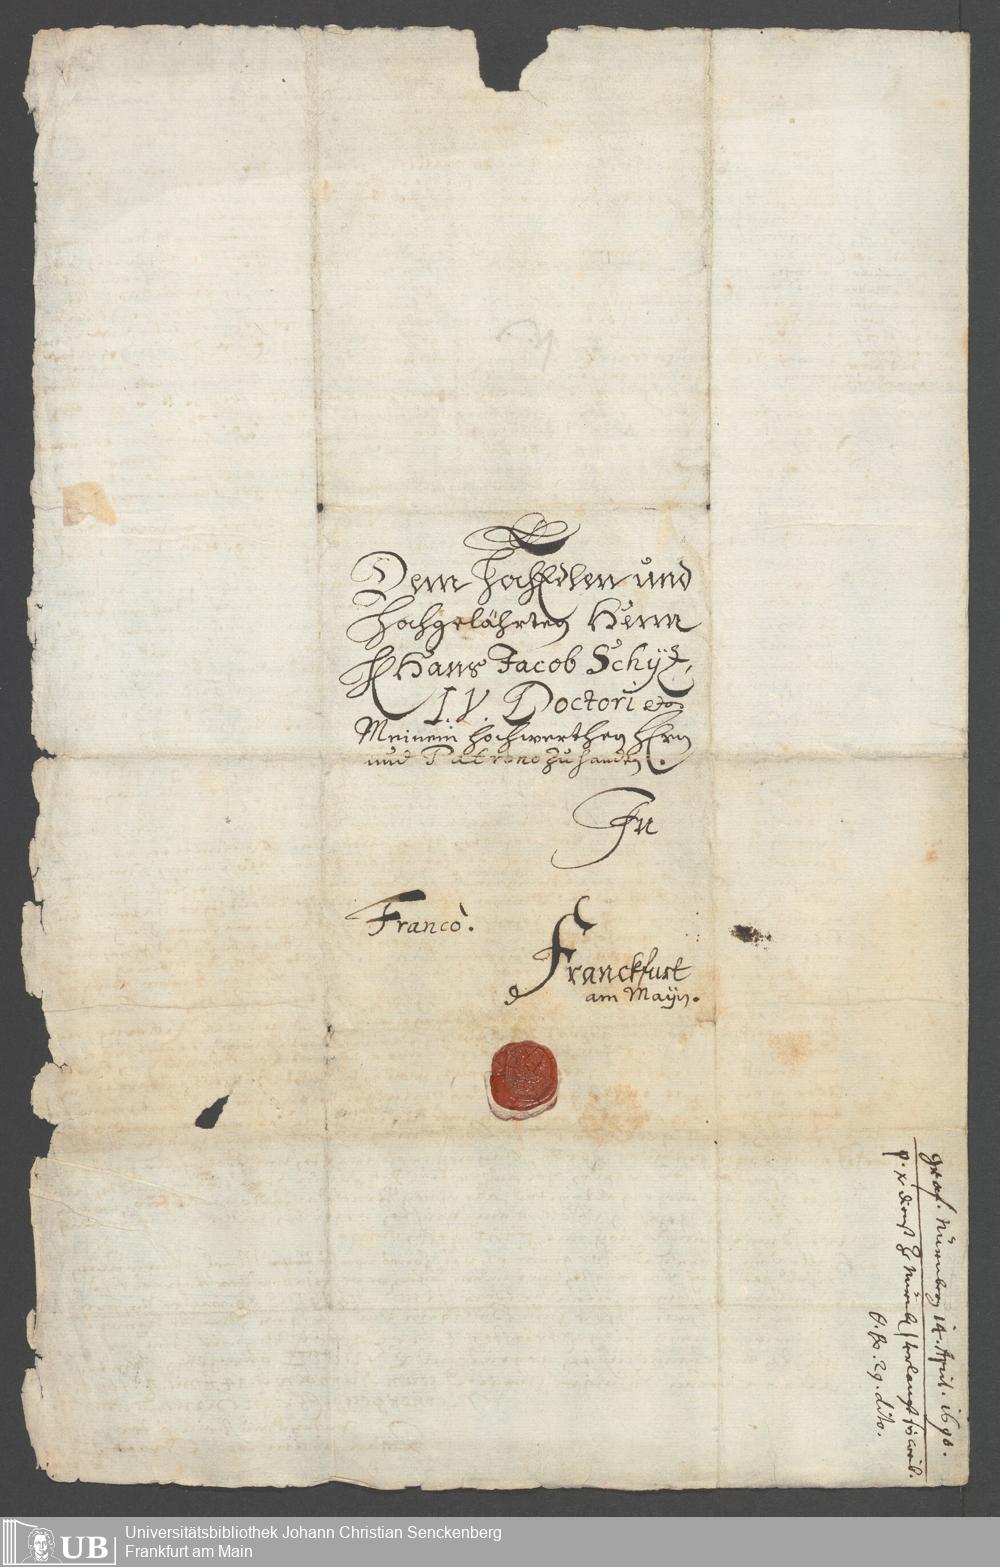 Dem HochEdlen und
Hochgelährten Herrn
H Hanns Jacob Schüz,
I. V. Doctori etc
Meinem hochwerthen Hrn
und Patrono zu handen.
In
Franco.
Franckfurt
am Mayn.
Nürnberg 14. April. 1690.
dito.
Universitätsbibliothek Johann Christian Senckenberg
Frankfurt am Main
UB